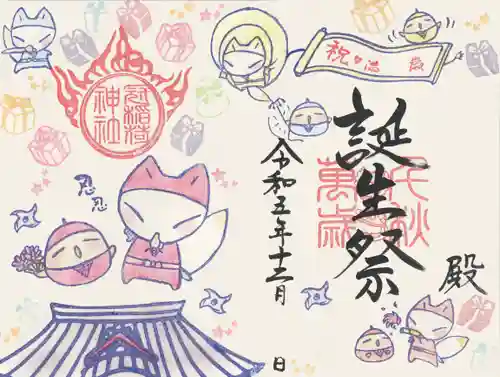 祝
誕生祭
千秋
萬歳
殿
令和五年十二月
日
冠稲荷
神社
忍
忍